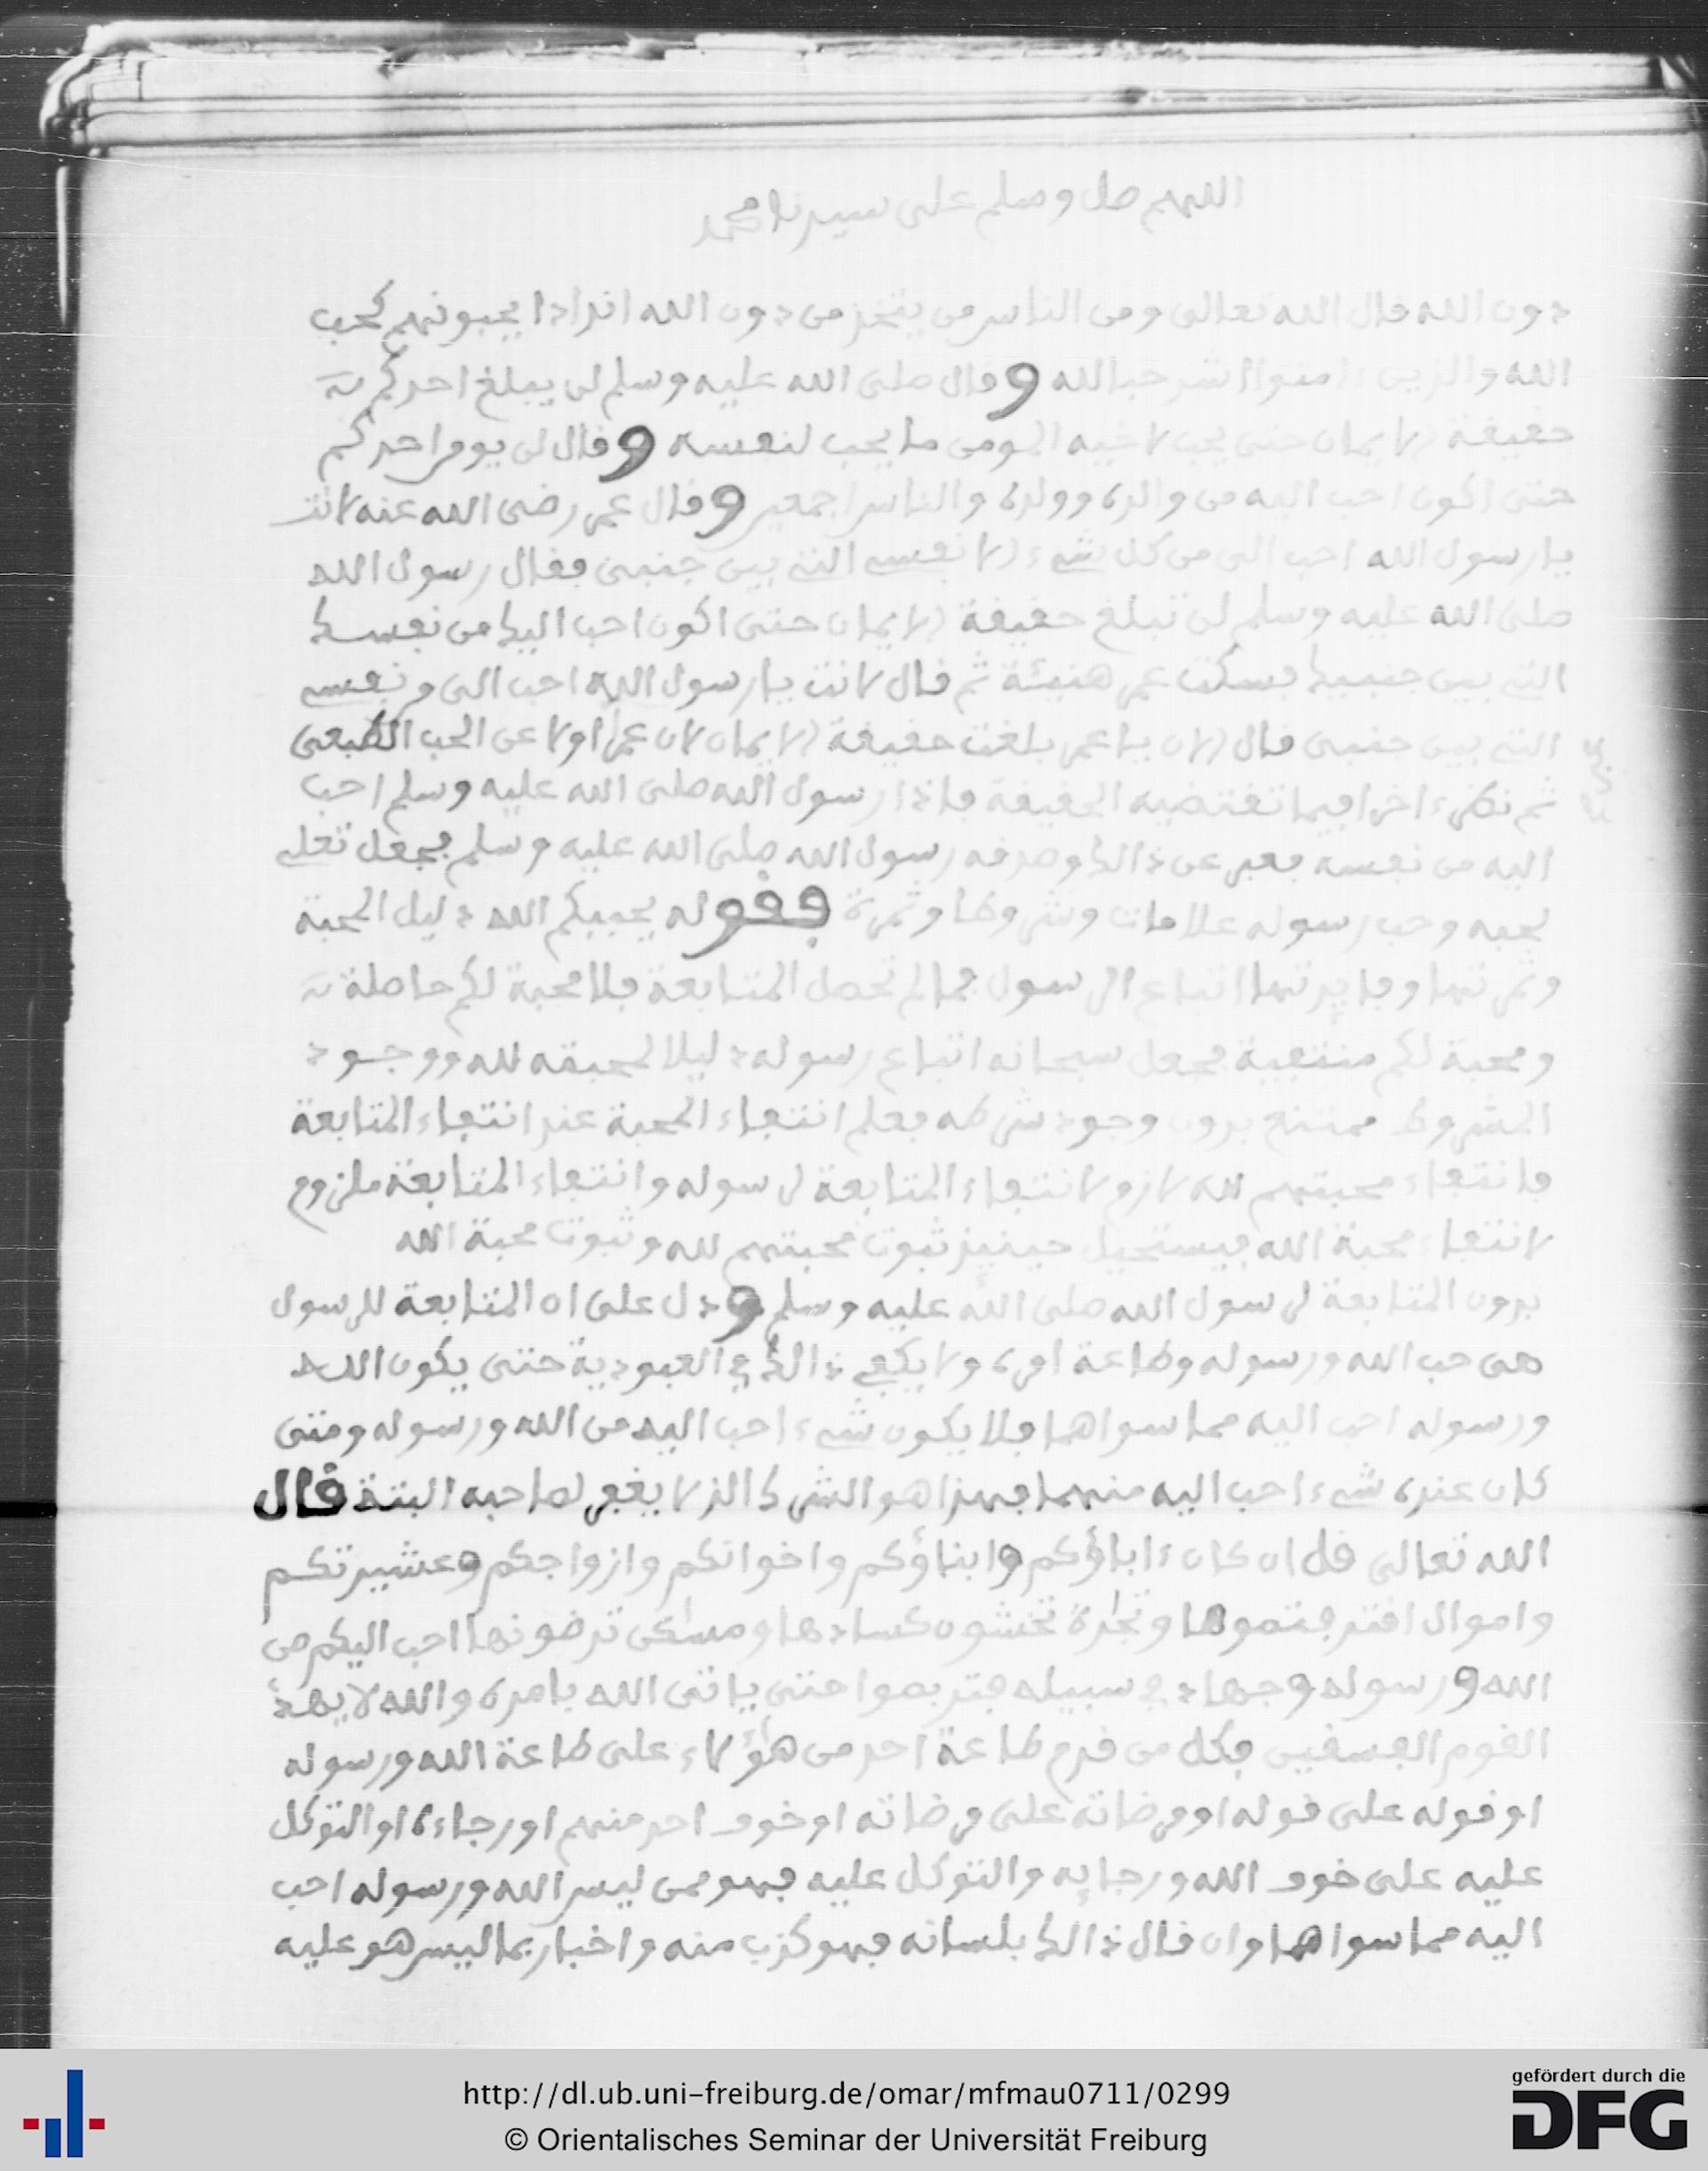 اللهم صل وسلم على سيدنا محمد
دون الله قال الله تعالى ومن الناس من يتخذ من دون الله اندادا يحبونهم كحب
الله والذين ءامنوا اشد حبا لله وقال صلى الله عليه وسلم لن يبلغ احدكم
حقيقة الايمان حتى يحب لاخيه المومن ما يحب لنفسه وقال لن يومن احدكم
حتى اكون احب اليه من والده وولده والناس اجمعين وقال عمر رضى الله عنه لانت
يا رسول الله احب الى من كل شىء الا نفسى التى بين جنبى فقال رسول الله
صلى الله عليه وسلم لن تبلغ حقيقة الايمان حتى اكون احب اليك من نفسك
التى بين جنبيك فسكت عمر هنيئة ثم قال لانت يا رسول الله احب الى من نفسى
التى بين جنبى قال الان يا عمر بلغت حقيقة الايمان لان عمر اولا عن الحب الطبعى
ثم نظر ءاخرا فيما تقتضيه الحقيقة فاذا رسول الله صلى الله عليه وسلم احب
اليه من نفسه فعبر عن ذالك وصدقه رسول الله صلى الله عليه وسلم فجعل تعلى
لحبه وحب رسوله علامات وشروطا وثمرة فقوله يحببكم الله دليل المحبة
وثمرتها وفايدتها اتباع الرسول فما لم تحصل المتابعة فلا محبة لكم حاصلة
ومحبة لكم منتفية فجعل سبحانه اتباع رسوله دليلا لمحبته لله ووجود
المشروط ممتنع بدون وجود شرطه فعلم انتفاء المحبة عند انتفاء المتابعة
فانتفاء محبتهم لله لازم لانتفاء المتابعة لرسوله وانتفاء المتابعة ملزوم
لانتفاء محبة الله فيستحيل حينيذ ثبوت محبتهم لله وثبوت محبة الله
بدون المتابعة لرسول الله صلى الله عليه وسلم ودل على ان المتابعة للرسول
هى حب الله ورسوله وطاعة امره ولا يكفى ذالك فى العبودية حتى يكون الله
ورسوله احب اليه مما سواهما فلا يكون شىء احب اليه من الله ورسوله ومتى
كان عنده شىء احب اليه منهما فهذا هو الشرك الذ لا يغفر لصاحبه البتة قال
الله تعالى قل ان كان ءاباؤكم وابناؤكم واخوانكم وازواجكم وعشيرتكم
واموال اقترفتموها وتجارة تخشون كسادها ومساكن ترضونها احب اليكم من
الله ورسوله وجهاد فى سبيله فتربصوا حتى ياتى الله بامره والله لا يهد
القوم الفسقين فكل من قدم طاعة احد من هؤلاء على طاعة الله ورسوله
او قوله على قوله او مرضاته على مرضاته او خوف احد منهم او رجاءه او التوكل
عليه على خوف الله ورجايه والتوكل عليه فهو ممن ليس الله ورسوله احب
اليه مما سواهما وان قال ذالك بلسانه فهو كذب منه واخبار بما ليس هو عليه
http://dl.ub.uni-freiburg.de/omar/mfmau0711/0299
© Orientalisches Seminar der Universität Freiburg
gefördert durch die
DFG